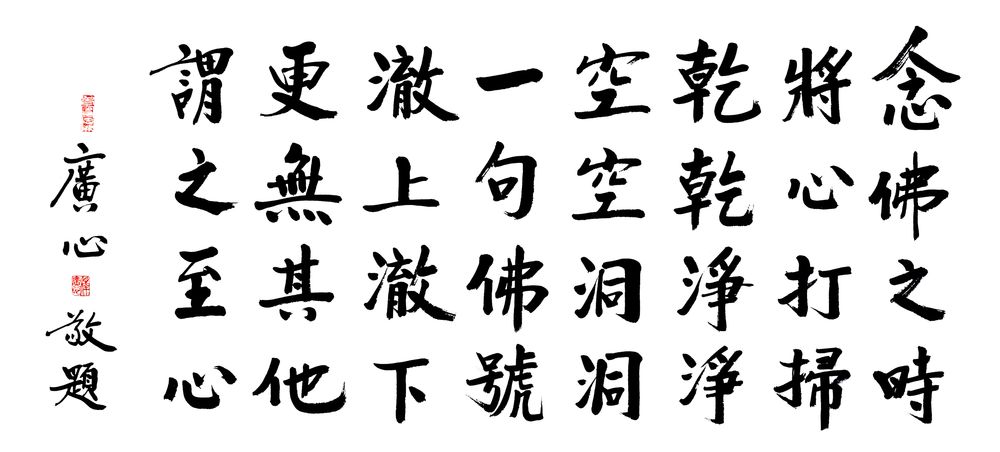 念佛之時
將心打掃
乾乾淨淨
空空洞洞
一句佛號
澈上澈下
更無其他
謂之至心
廣心敬題